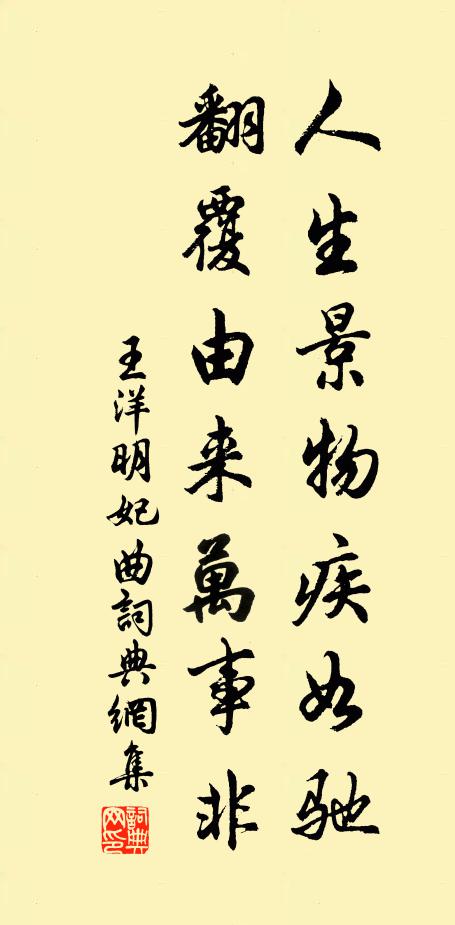 人生景物疾如馳
翻覆由来萬事非
王洋明妃曲詞典網集
詞典網印